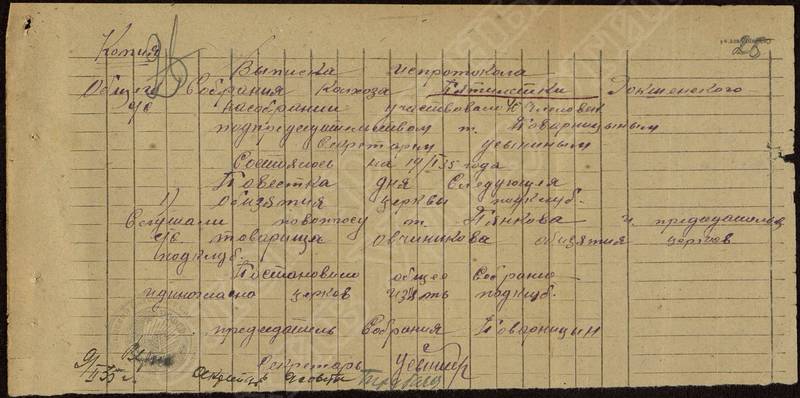 Копия
25
Выписка испротокола
Общего Собрания Колхоза Пятилетки Докшенского
с/с насобрании участвовало человек
подпредседательством т. Поварницыным
Секретарем
Состоялось на 19/II 35 года
Повестка дня следующая
1) Обизятия церквы подклуб.
Слушали повопросу т. Пянкова и председатель
с/с. товарища Овчиникова обизятия церков
подклуб.
Постановило общее Собрание
идиногласна церков изять подклуб.
председатель Собрания Поварницын
Секретарь
Верно
9/II 35 г.